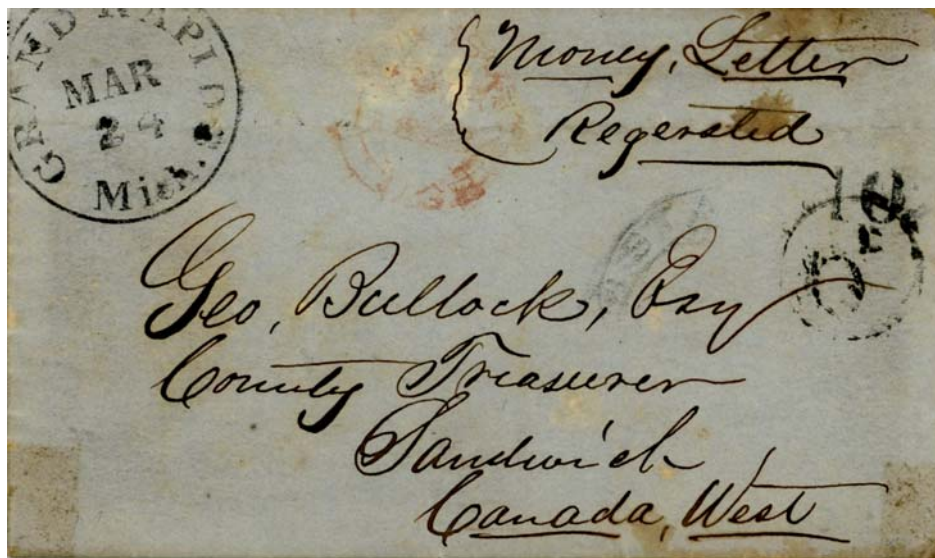 GRAND RAPIDS
MAR
24
Mich.
Money, Letter
Regersted
10
6
Geo, Bullock, Esq
County Treasurer
Sandwich
Canada, West